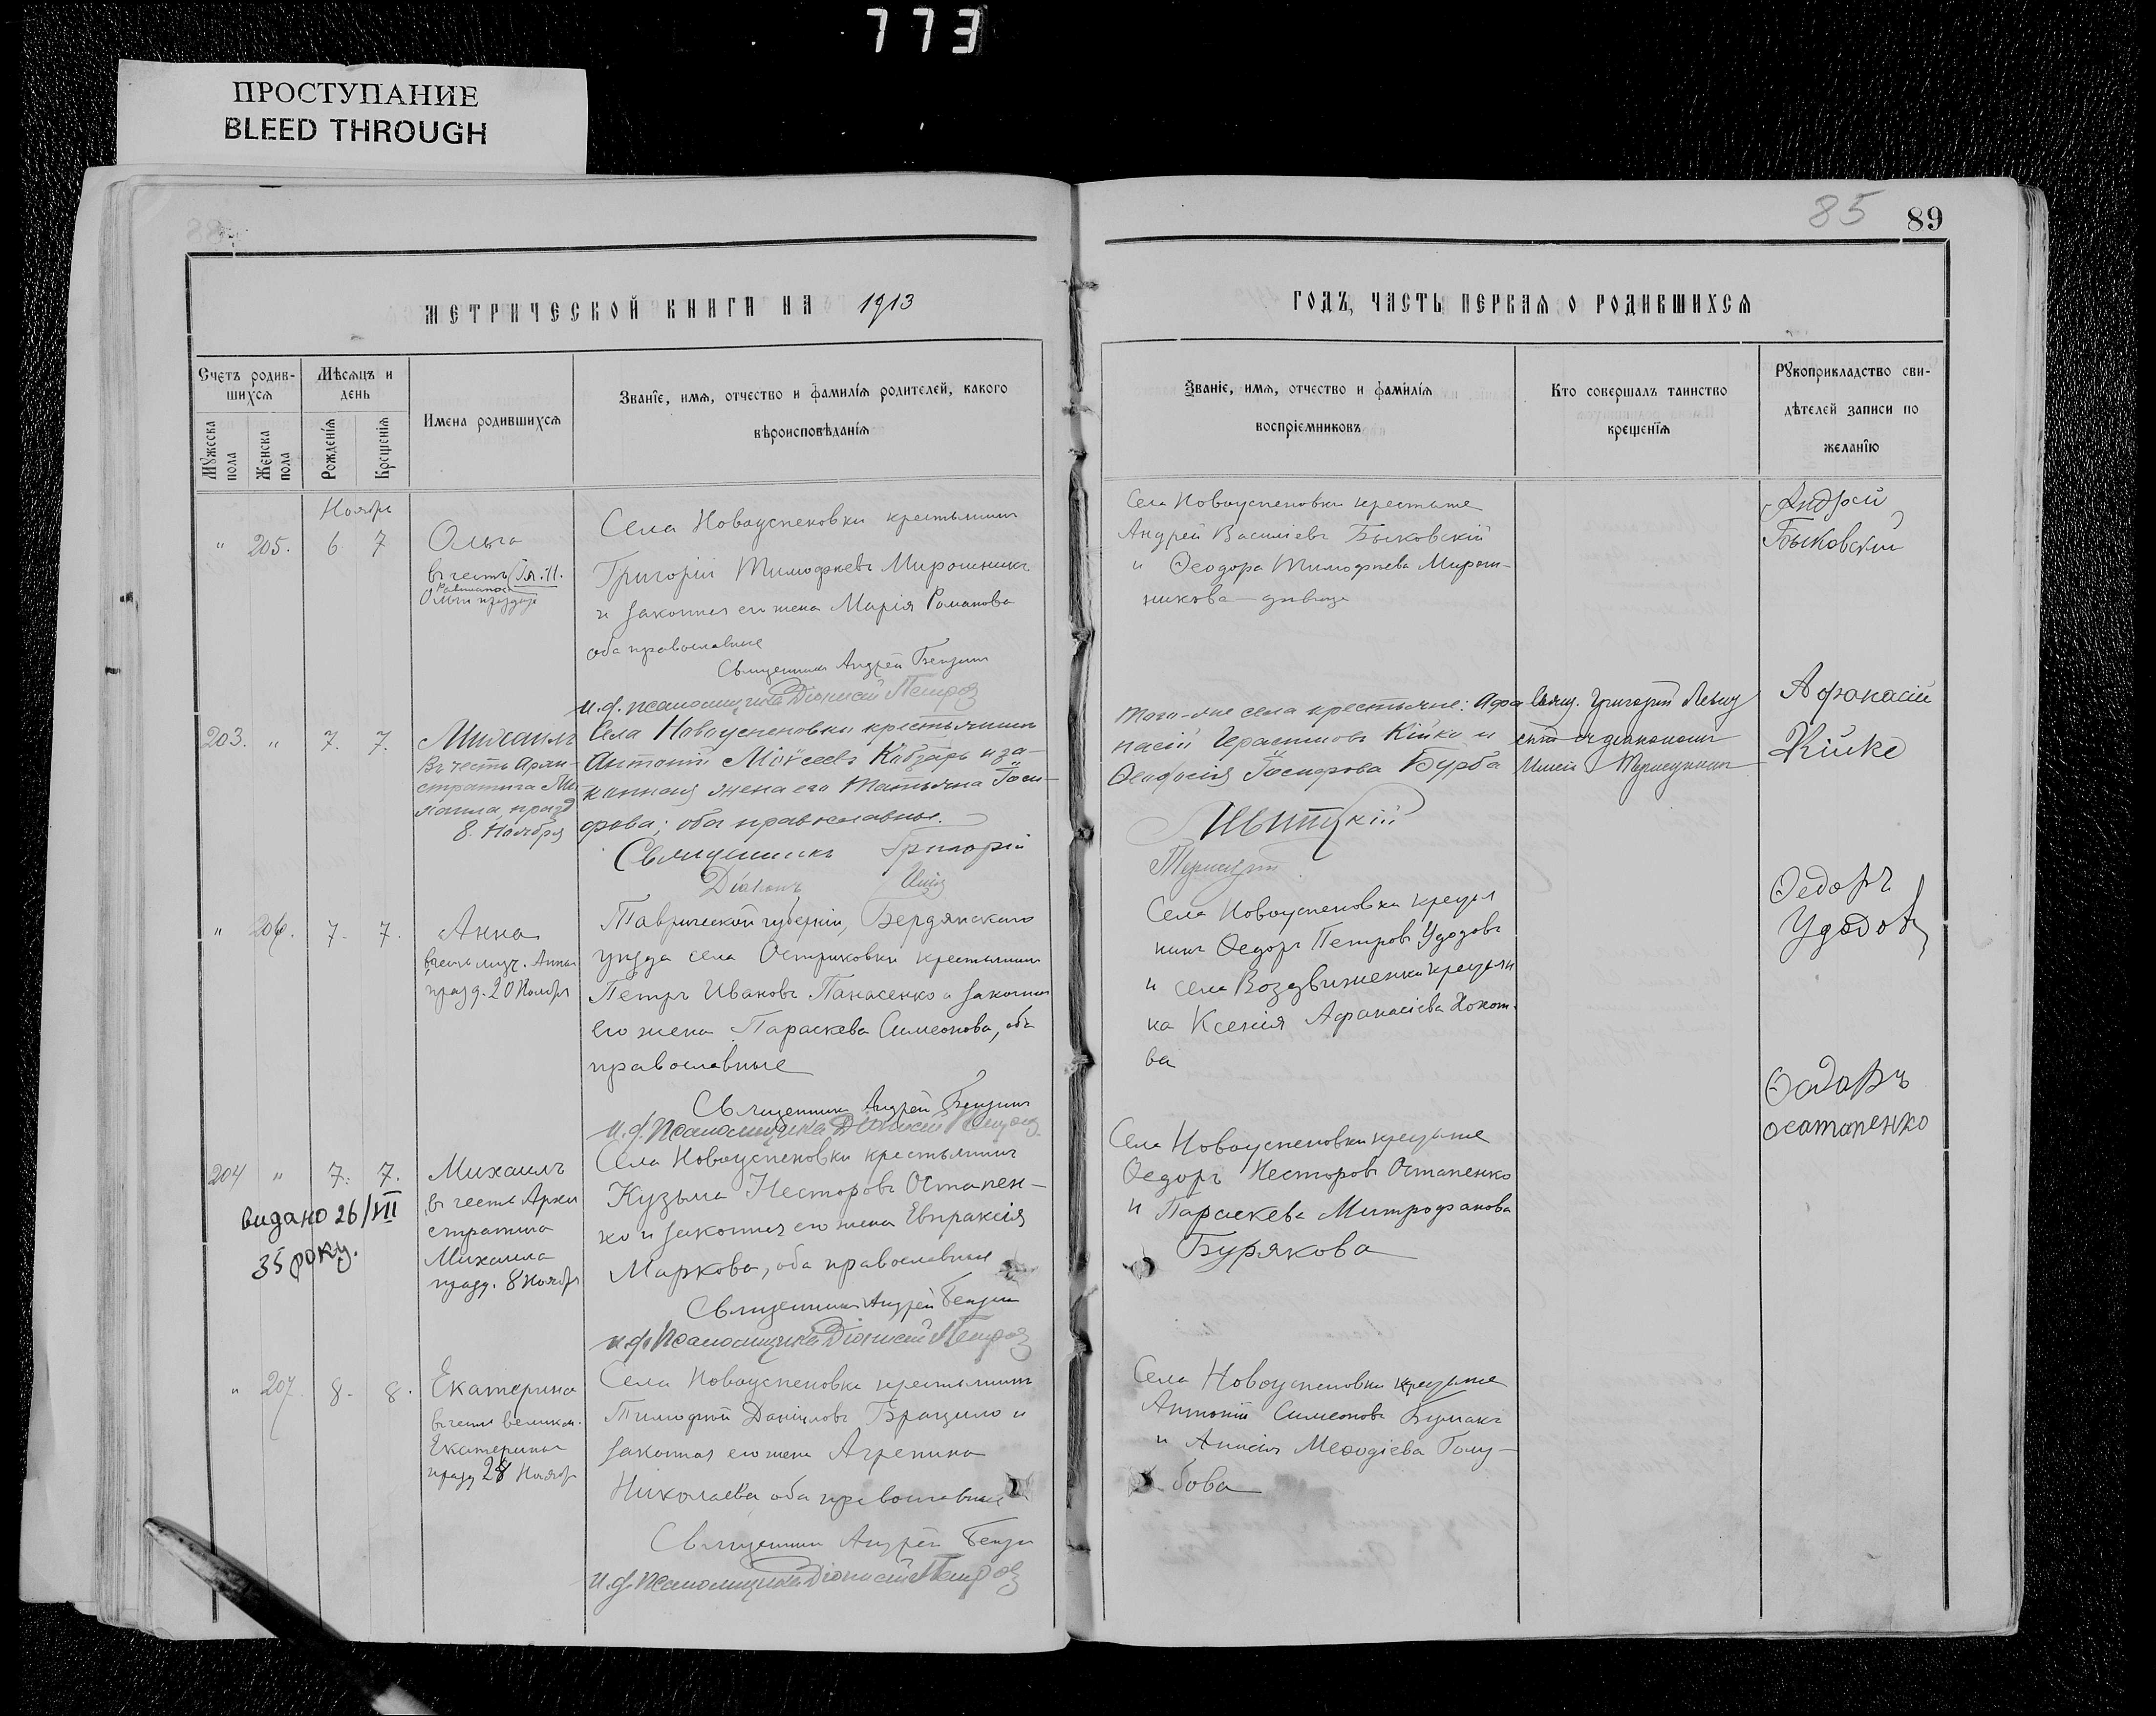 773
ПРОСТУПАНИЕ
BLEED THROUGH
85 89
МЕТРИЧЕСКОЙ КНИГИ НА 1913
ГОДЪ, ЧАСТЬ ПЕРВАЯ О РОДИВШИХСЯ
Счетъ родив-
шихся
Мужеска пола
Женска пола
Мѣсяцъ и
день
Рожденія
Крещенія
Имена родившихся
Званіе, имя, отчество и фамилія родителей, какого
вѣроисповѣданія
Званіе, имя, отчество и фамилія
воспріемниковъ
Кто совершалъ таинство
крещенія
Рукоприкладство сви-
дѣтелей записи по
желанію
Ноября
" 205. 6 7
Ольга
въ честь
Ольги
Села Новоуспеновки крестьянинъ
Григорій Тимофеевъ Мирошникъ
и законная его жена Марія Романова
оба православные
Священникъ Андрей
и.д. псаломщика Діонисій Петровъ
Села Новоуспеновки крестьяне
Андрей Василіевъ Быковскій
и Ѳеодора Тимофеева Мирош-
никова - девица
Андрей
Быковский
203. " 7. 7.
Михаилъ
Въ честь Архи-
стратига Ми-
хаила, празд
8. Ноября
Села Новоуспеновки крестьянинъ
Антоній Моисеевъ Кобзарь и за-
конная жена его Татьяна Іоси-
фова; оба православные.
Священникъ Григорій
Діаконъ
Того-же села крестьяне: Афа
насій Герасимовъ Кійко и
Ѳеодосія Іосифова Бурба
Свящ. Григорій Левиц
кій съ діакономъ
Левитскій
Афанасій
Кійко
" 206. 7. 7.
Анна
въ честь Анны
празд. 20 Ноября
Таврической губерніи, Бердянскаго
уезда села Остриковки крестьянинъ
Петръ Ивановъ Панасенко и законная
его жена Параскева Симеонова, оба
православные
Священникъ Андрей
и.д. Псаломщика Діонисій Петровъ
Села Новоуспеновки крестья
нинъ Ѳедоръ Петровъ Удодовъ
и села Воздвиженки крестьян
ка Ксенія Афанасіева Хохот-
ва
Ѳедоръ
Удодов
204 " 7. 7.
Михаилъ
въ честь Архи
стратига
Михаила
празд. 8 Ноября
видано 26/VII
35 року.
Села Новоуспеновки крестьянинъ
Кузьма Несторовъ Остапен-
ко и законная его жена Евпраксія
Маркова, оба православные
Священникъ Андрей
и.д. Псаломщика Діонисій Петровъ
Села Новоуспеновки крестьяне
Ѳедоръ Несторовъ Остапенко
и Параскева Митрофанова
Бурякова
Ѳедоръ
осатапенко
" 207. 8. 8.
Екатерина
въ честь великом.
Екатерины
празд 24 Ноября
Села Новоуспеновки крестьянинъ
Тимофей Даніиловъ и
законная его жена Агрепина
Николаева оба православные
Священникъ Андрей
и.д. Псаломщика Діонисій Петровъ
Села Новоуспеновки крестьяне
Антоній Симеоновъ
и Анисія Меѳодіева Голу-
бова